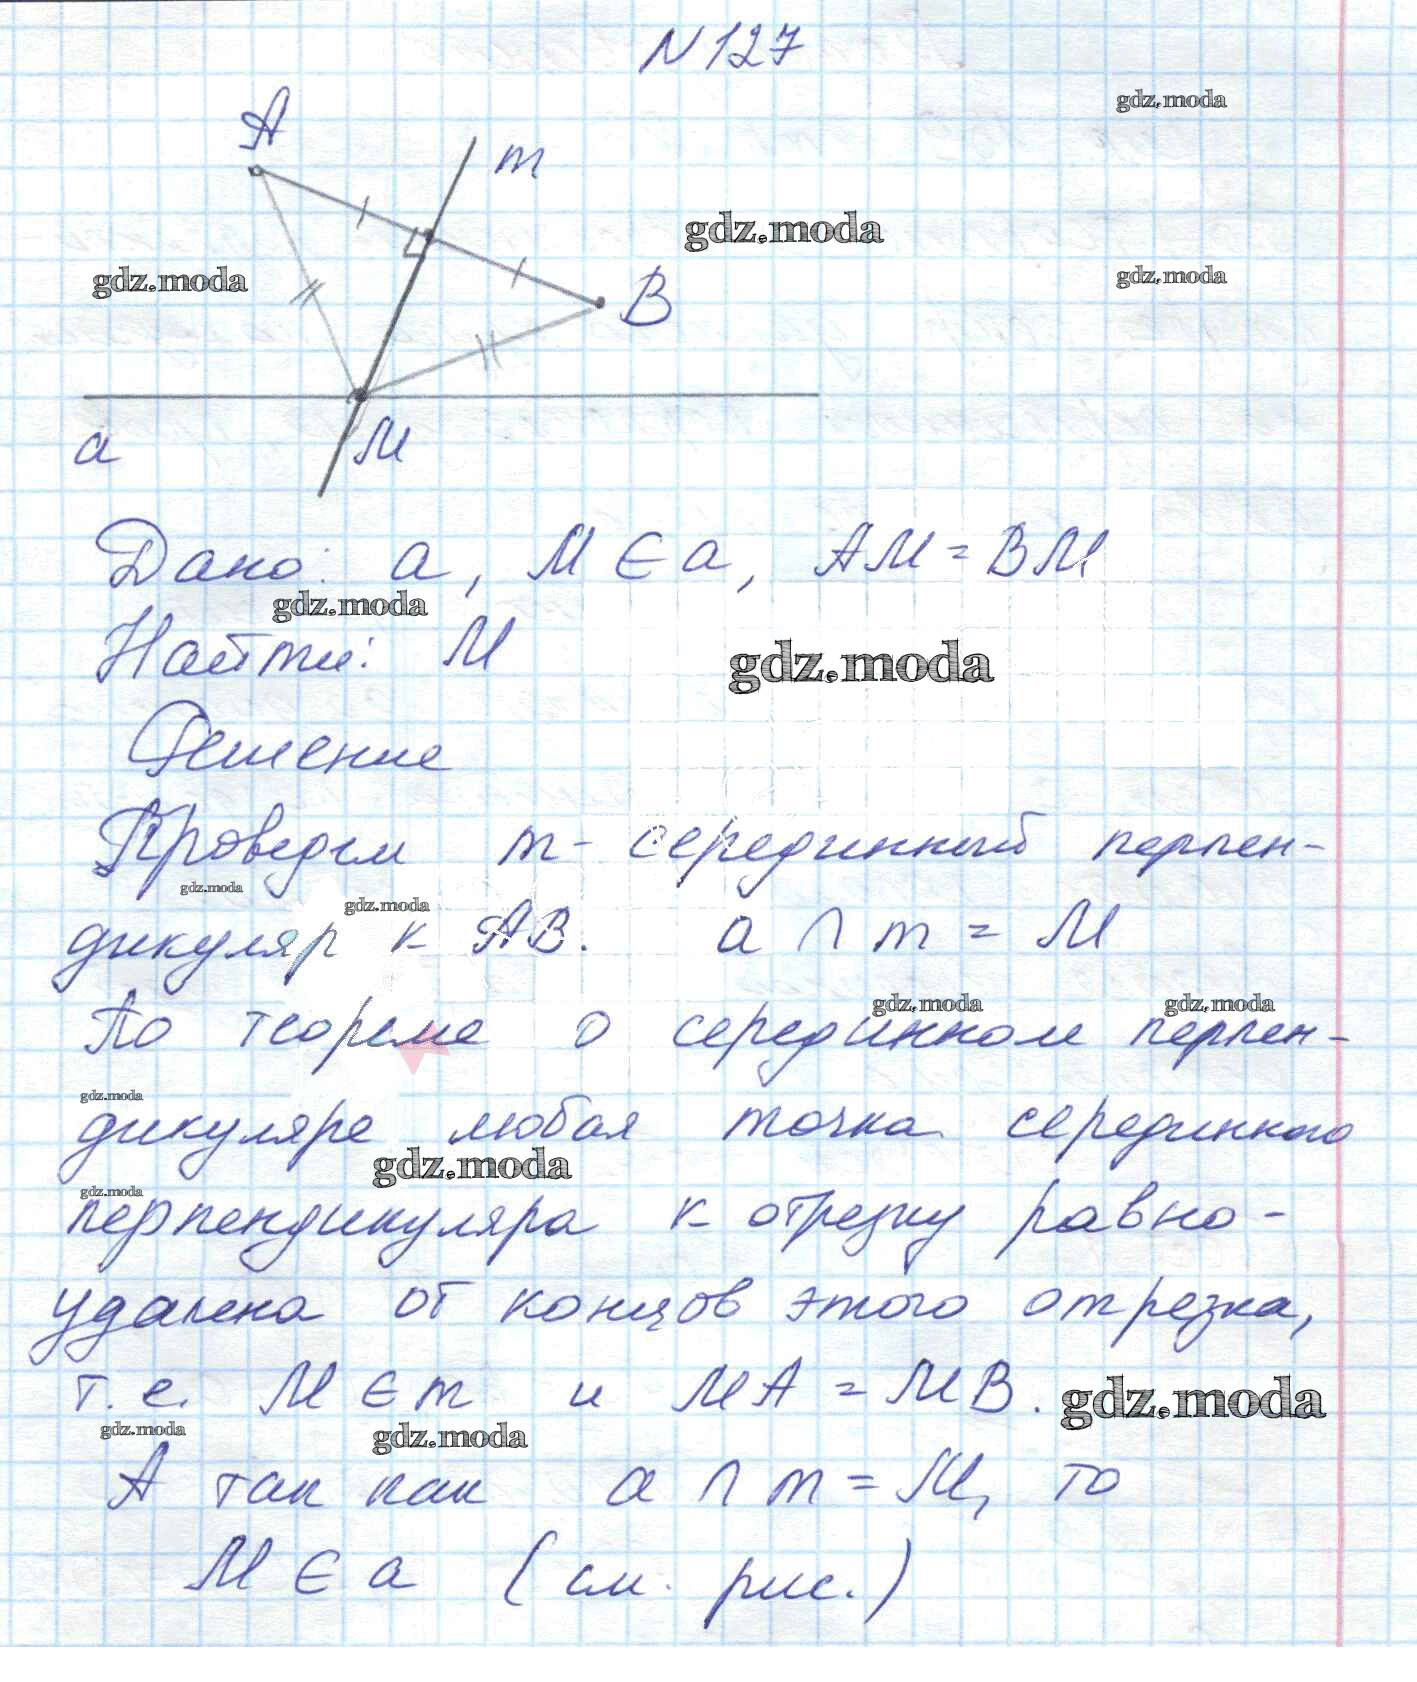 N 127
gdz.moda
A
m
gdz.moda
gdz.moda
gdz.moda
B
a
M
Дано: a, M ∈ a, AM = BM,
gdz.moda
Найти: M
gdz.moda
Решение
Проведем m - серединный перпен-
gdz.moda
gdz.moda
дикуляр к AB. a ∩ m = M
gdz.moda
gdz.moda
По теореме о серединном перпен-
gdz.moda
дикуляре любая точка серединного
gdz.moda
gdz.moda
перпендикуляра к отрезку равно-
удалена от концов этого отрезка,
т.е. M ∈ m и MA = MB.
gdz.moda
gdz.moda
gdz.moda
А так как a ∩ m = M, то
M ∈ a (см. рис.)